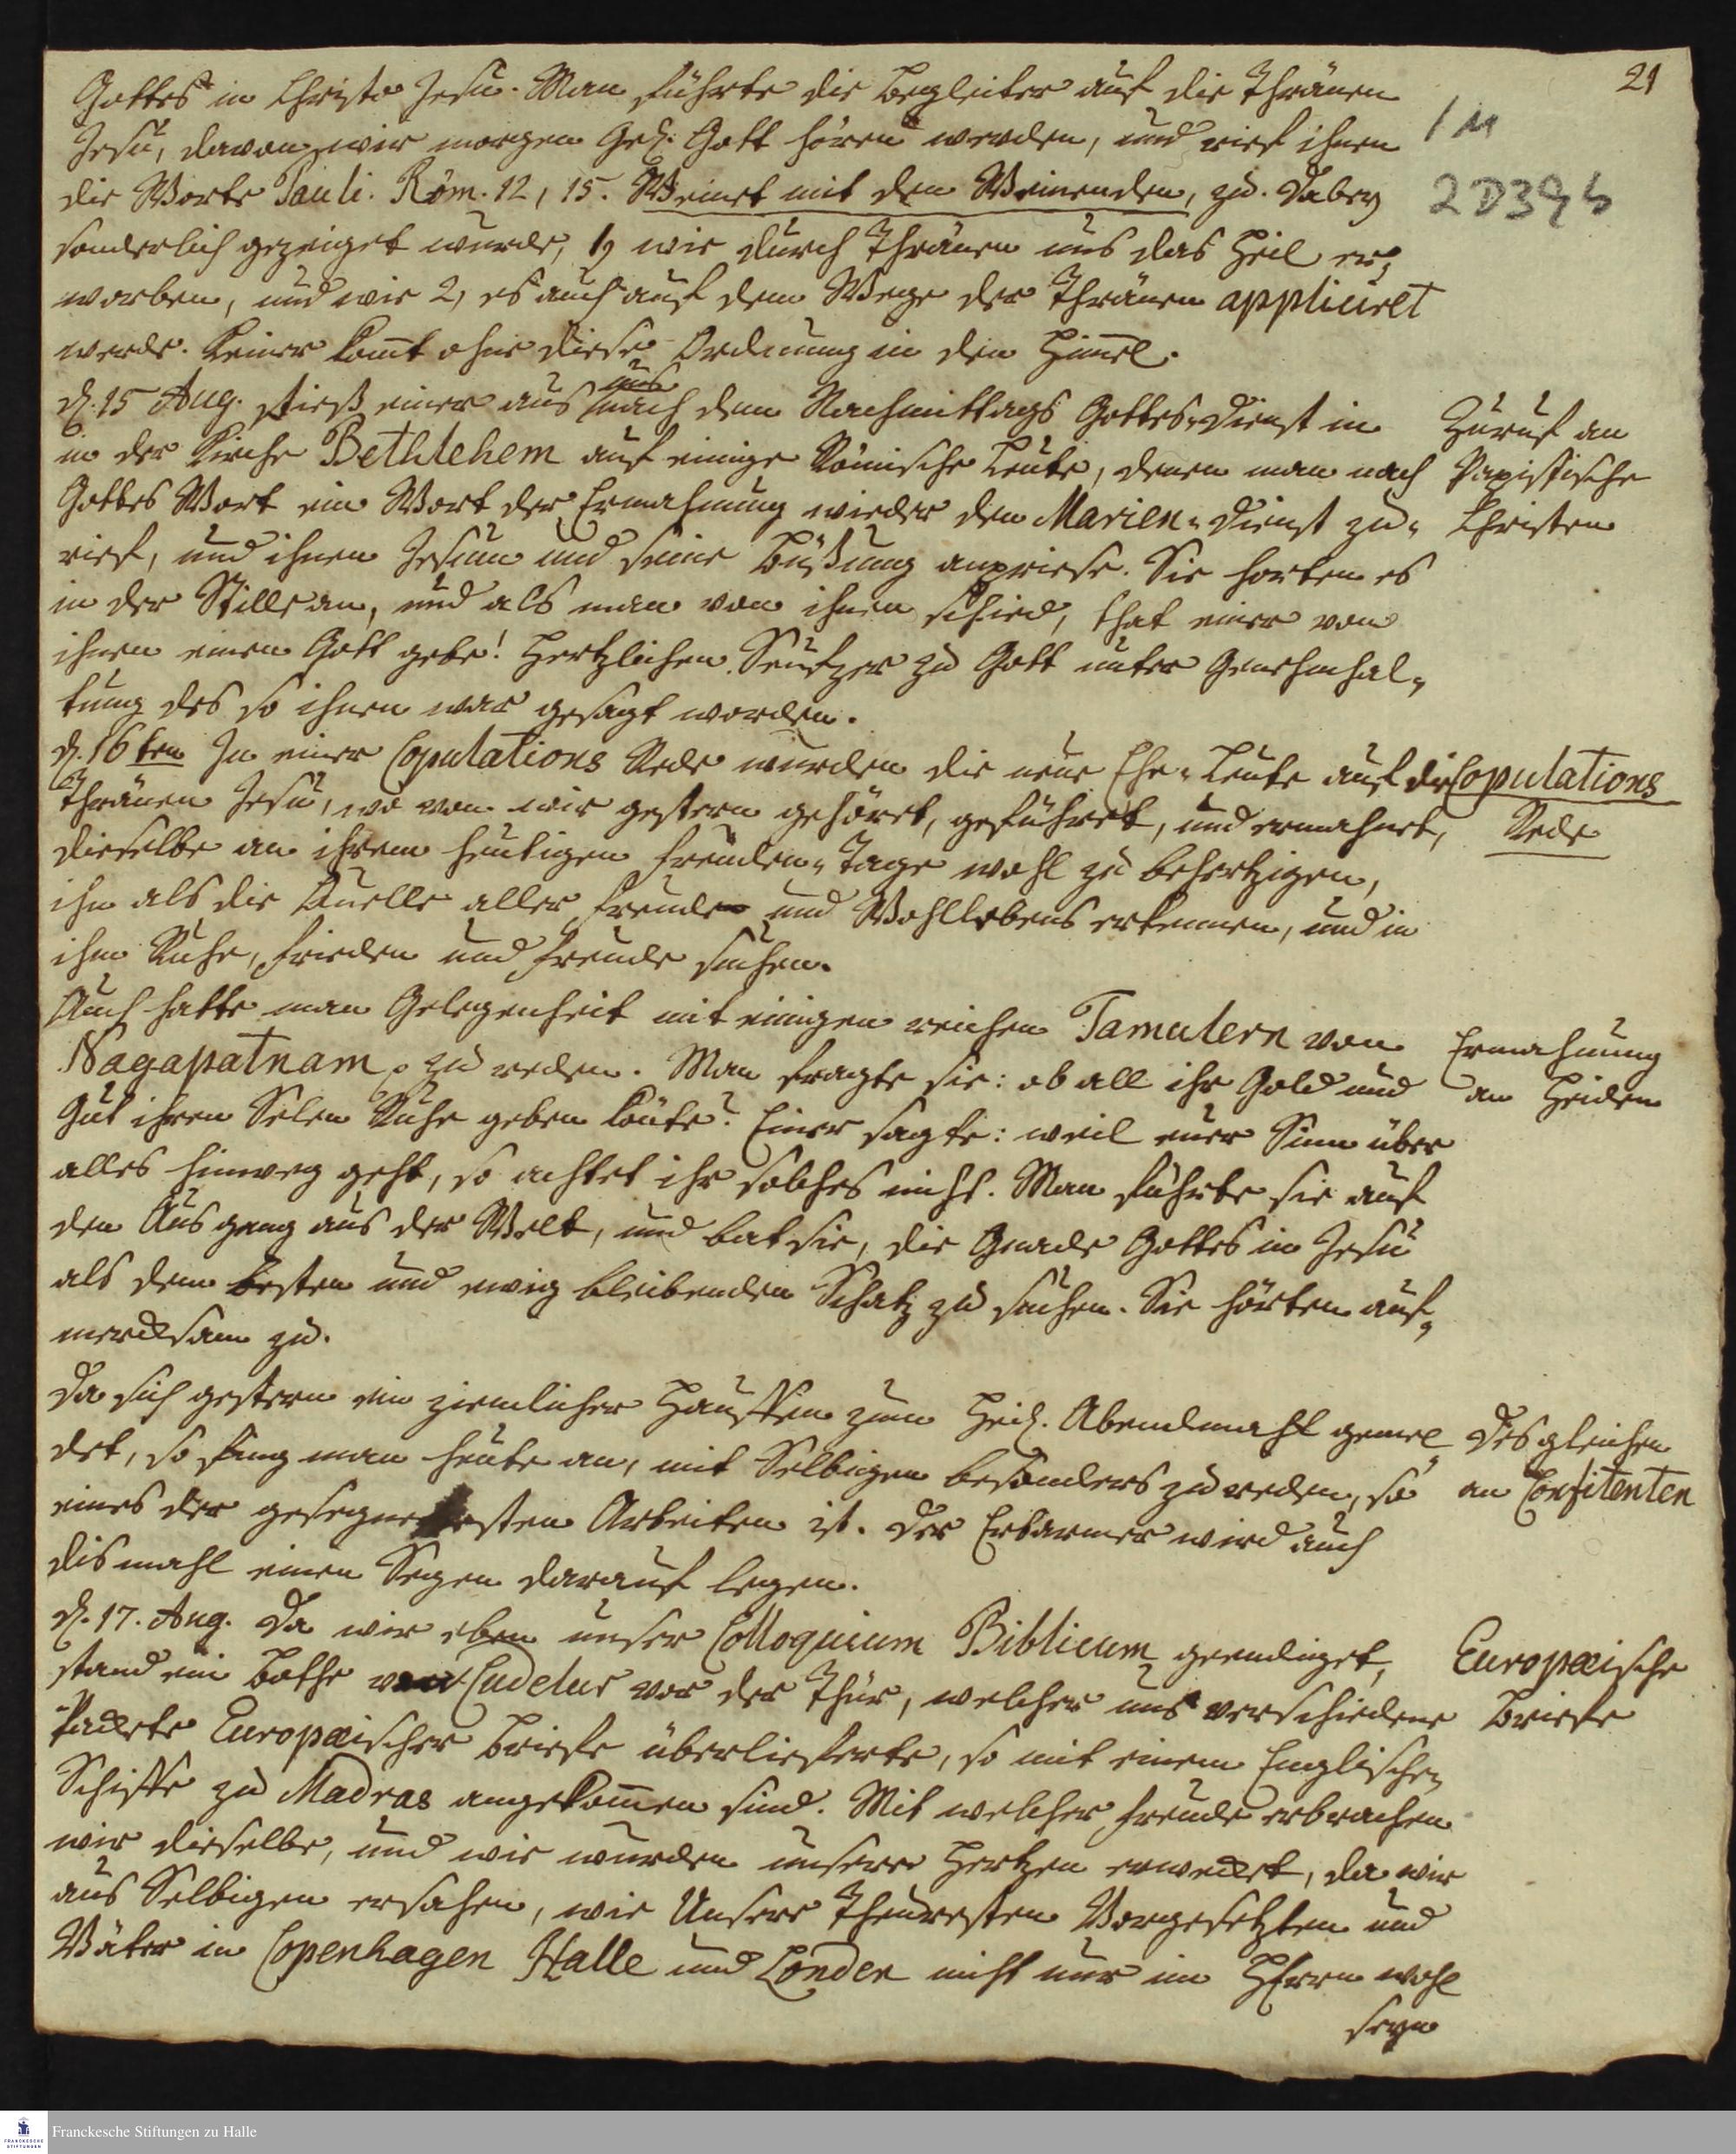 21
Gottes in Christo Jesu. Man führte die Begleiter auf die Thränen
1 M
Jesu, davon wir morgen Gel. Gott hören werden, und rief ihnen
die Worte Pauli. Röm. 12, 15. Weinet mit den Weinenden, zu. Dabey
2D39b
sonderlich gezeiget wurde, 1, wie durch Thränen uns das Heil er-
worben, und wie 2, es auch auf dem Wege der Thränen appliciret
werde. Keiner kom̄t ohne diese Ordnung in den Him̄el.
d. 15 Aug. stieß einer aus uns nach dem Nachmittags Gottes-Dienst in
Zuruf an
in der Kirche Bethlehem auf einige Römische Leute, denen man nach
Papistische
Gottes Wort ein Wort der Ermahnung wieder den Marien-Dienst zu-
Christen
rief, und ihnen Jesum und seine Büßung anpriese. Sie horten es
in der Stille an, und als man von ihnen schied, that einer von
ihnen einen Gott gebe! Hertzlichen Seufzer zu Gott unter Genehmhal-
tung des so ihnen war gesagt worden.
d. 16ten In einer Copulations Rede wurden die neue Ehe-Leute auf die
Copulations
Thränen Jesu, wo von wir gestern gehöret, geführet, und ermahnet,
Rede
dieselbe an ihrem heutigen Freuden-Tage wohl zu behertzigen,
ihn als die Quelle aller Freude und Wohllebens erkennen, und in
ihm Ruhe, Frieden und Freude suchen.
Auch hatte man Gelegenheit mit einigen reichen Tamulern von
Ermahnung
Nagapatnam zu reden. Man fragte sie: ob all ihr Gold und
an Heiden
Gut ihren Selen Ruhe geben könte? Einer sagte: weil euer Sinn über
alles hinweg geht, so achtet ihr solches nicht. Man führte sie auf
den Ausgang aus der Welt, und bat sie, die Gnade Gottes in Jesu
als dem besten und ewig bleibenden Schatz zu suchen. Sie hörten auf-
mercksam zu.
Da sich gestern ein ziemlicher Hauffen zum Heil. Abendmahl gemel-
Desgleichen
det, so fing man heute an, mit Selbigen besonders zu reden, so
an Confitenten
eines der gesegnetesten Arbeiten ist. Der Erbarmer wird auch
dismahl einen Segen darauf legen.
d. 17. Aug. Da wir eben unser Colloquium Biblicum geendiget,
Europæische
stand ein Bothe von Cudelur vor der Thür, welcher uns verschiedene
Briefe
Packete Europæischer Briefe überlieferte, so mit einem Englischen
Schiffe zu Madras angekom̄en sind. Mit welcher Freude erbrachen
wir dieselbe, und wie wurden unsere Hertzen erweckt, da wir
aus Selbigen ersahen, wie Unsere Theuresten Vorgesetzten und
Väter in Copenhagen Halle und London nicht nur im HErrn wohl
seyn
Franckesche Stiftungen zu Halle